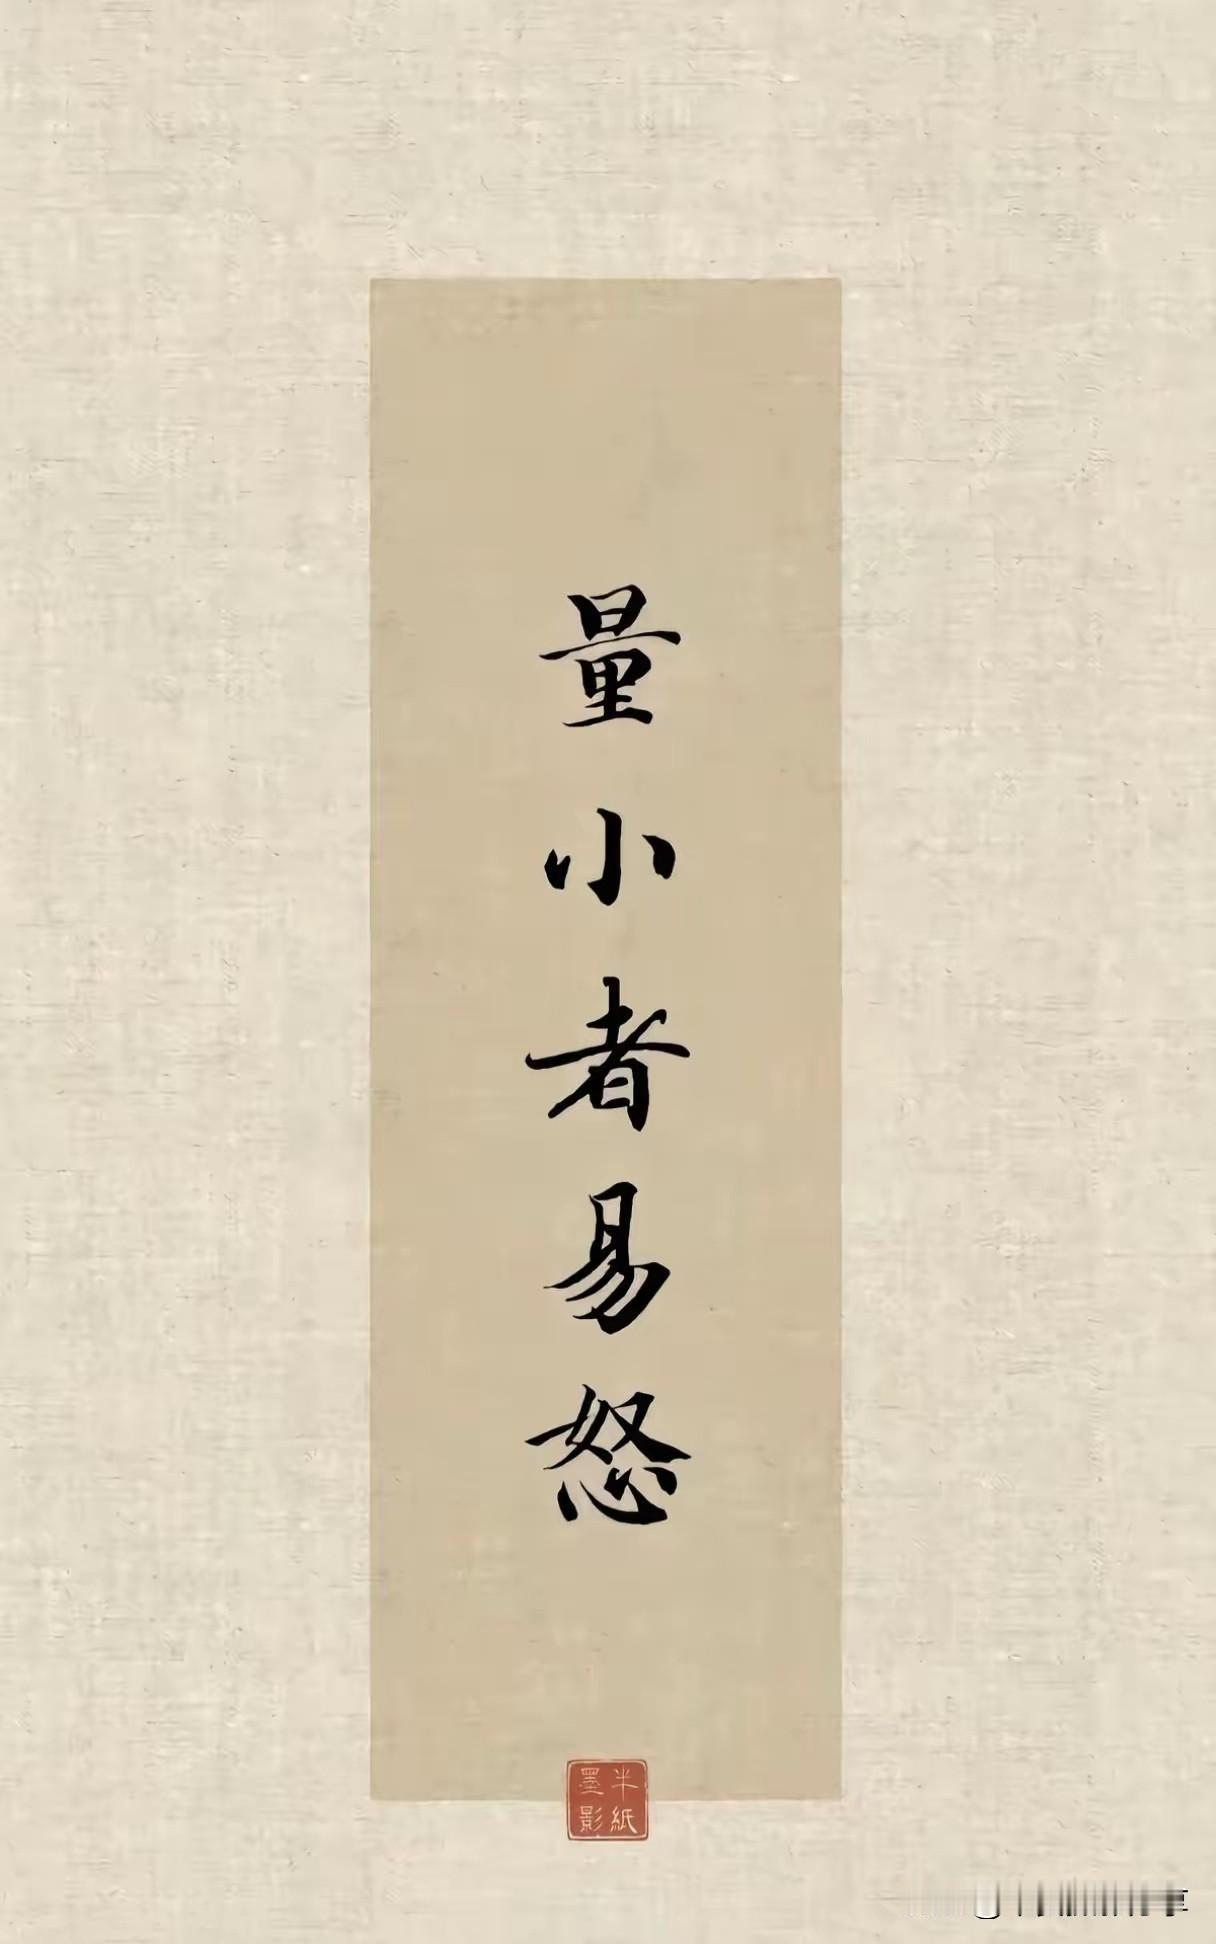 量小者易怒
半紙
墨影